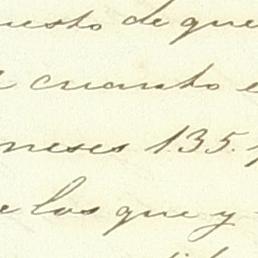 uesto de que
cuanto e
meses 135.
e los que y